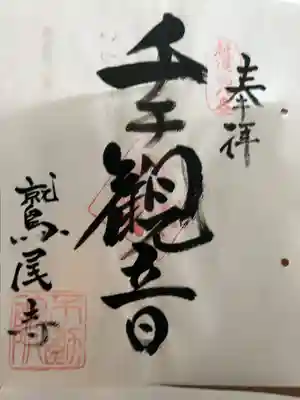 奉拝
千手観音
鷲尾寺